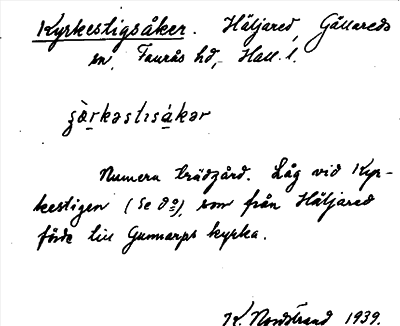 Kyrkestigsåker. Häljared, Gällareds
sn, Faurås hd, Hall. l.
ʒà̱rkəstɪsá̱kər
Numera trädgård. Låg vid Kyr-
kestigen (se d o), som från Häljared
förde till Gunnarps kyrka.
K. Nordstrand 1939.